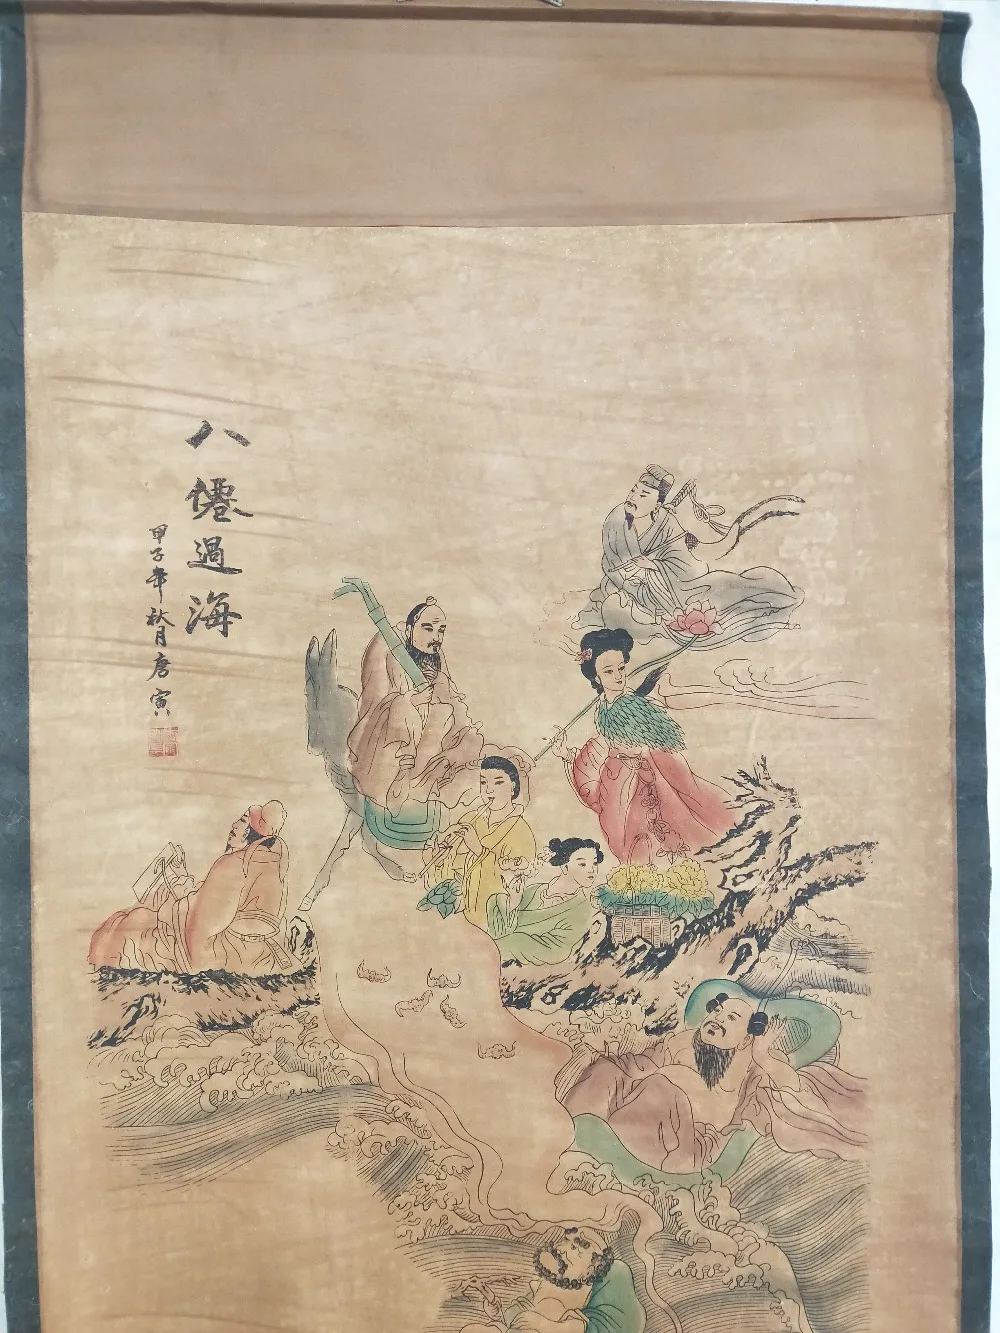 八僊過海
甲子年秋月唐寅